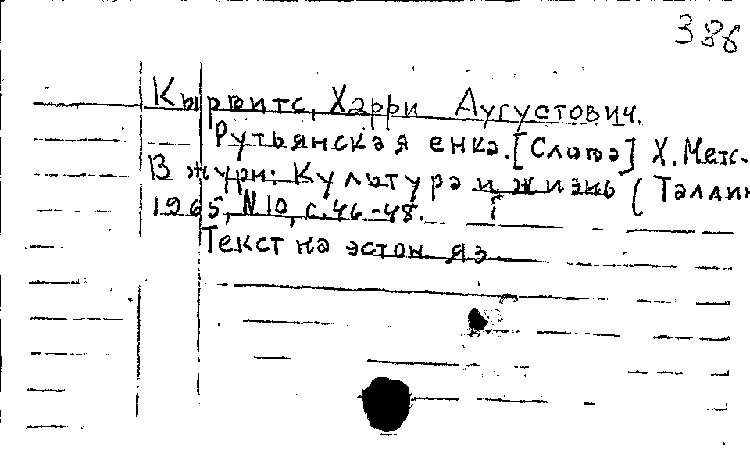 386
Кырвитс, Харри Аугустович.
Рутьянская енка. [Слова] Х. Метс.
В журн: Культура и жизнь (Таллин
1965, N 10, с. 46-48.
Текст на эстон. яз